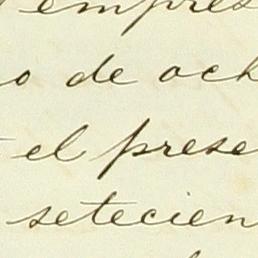 empres
o de och
el prese
setecien